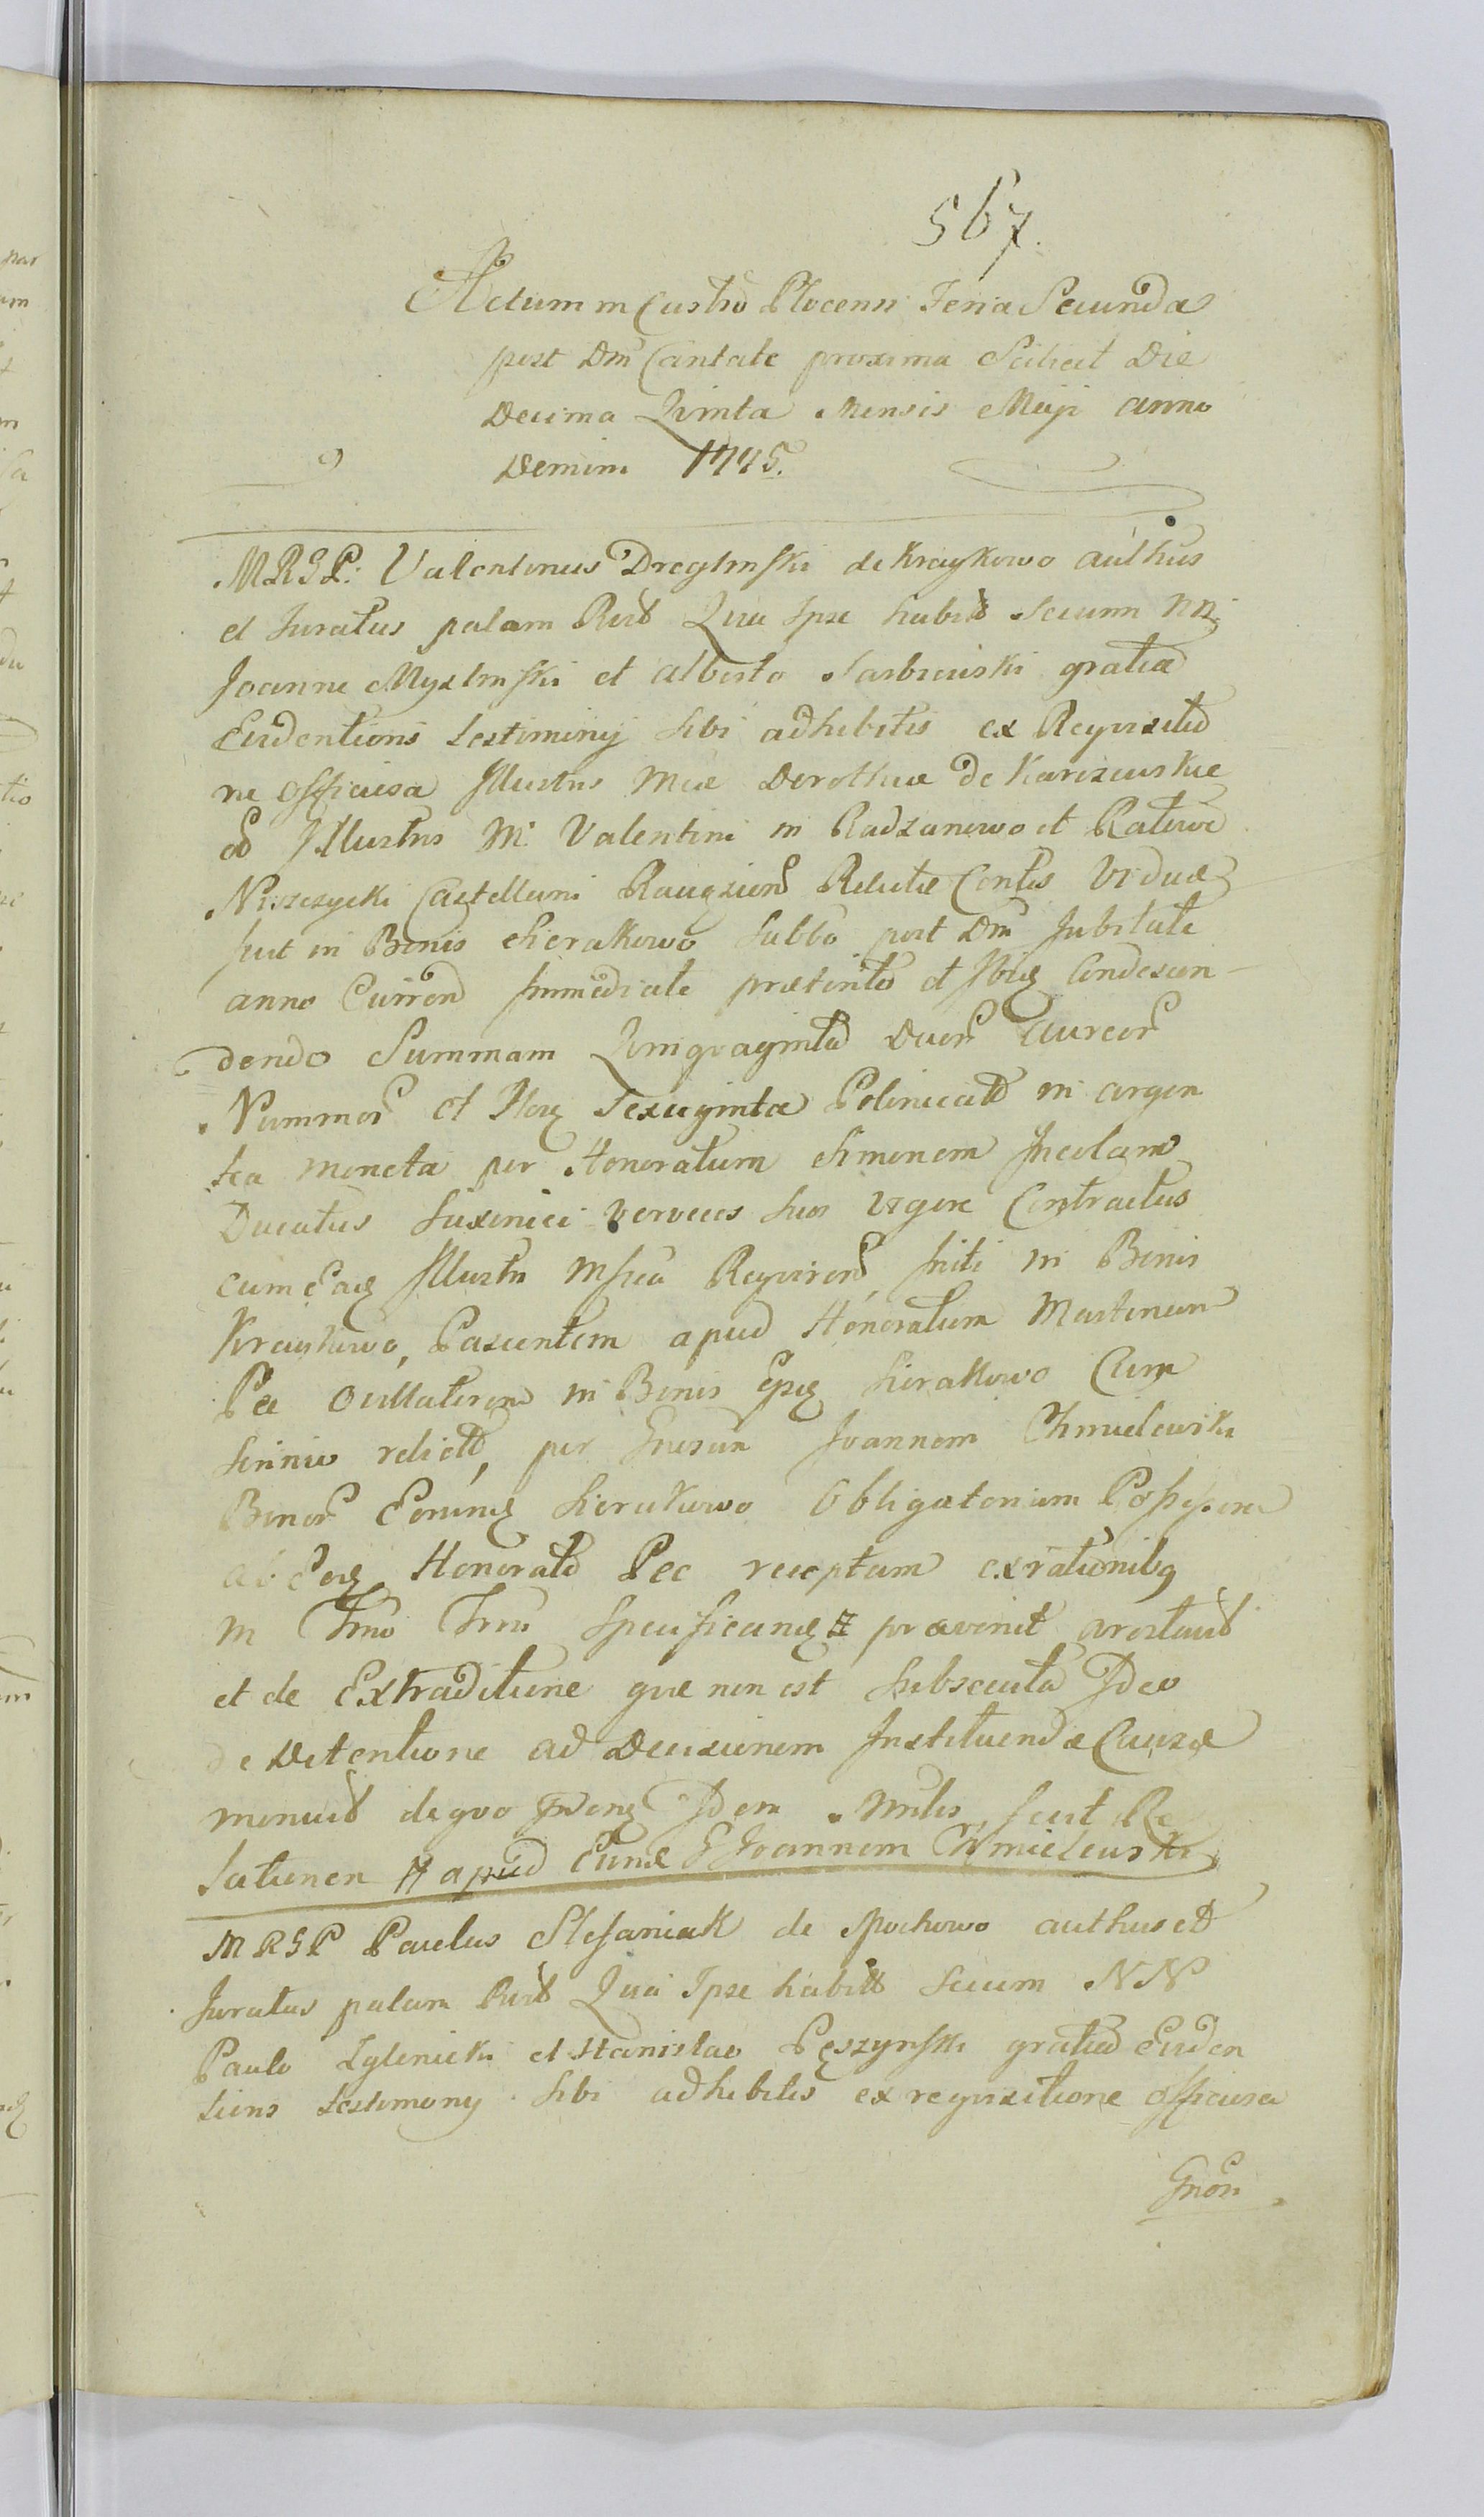 567.
Actum in Castro Plocensi Feria Secunda
post Dm̃ Cantate proxima Scilicet Die
Decima Quinta Mensis Maji anno
Domini 1775.
MRGP: Valentinus Dreglinski de Kraykowo authus
et Juratus palam Recť Quia Ipse habiť Secum NN
Joanne Myslinski et Alberto Sarbiewski gratia
Evidentioris testimonij sibi adhibitis ex Requisitio
ne officiosa Illustris Mcae Dorotheae de Karczewskie
Illustris M. Valentini in Radzanowo et Ratowo
Niszczycki Castellani Raciązien Relictae Contis Viduae
fuit in Bonis Sierakowo Sabbo post Dm̃ Jubilate
anno Curren Immediate praeterito et Ibiq condescen
dendo Summam Quinquaginta Duor Aureor
Nummor et Flor Sexaginta Polonicad in argen
tea moneta per Honoratum Simonem Incolam
Ducatus Saxonici verveces suos vigore Contractus
cum Eadq Illustri Mfica Requiren initi in Bonis
Kraykowo, Pascentem apud Honoratum Martinum
Pec ovillatorem in Bonis Ipsq Sierakowo Cum
sennio relictd, per Gnosum Joannem Chmielewski
Bonor Eorumq Sierakowo Obligatorium Possessorem
ab Eodq Honorato Pec receptam ex rationibq
in Trno Trmi Specificandq praevenit arestavit
et de Extraditione quae non est Subsecuta Ideo
de Detentione ad Decisionem Instituendae Causae
monuit de quo Idem Mnlis fecit Re
lationem apud Eundq G Joannem Chmielewski
MRGP Paulus Stefaniak de Mochowo authus et
Juratus palam Recť Quia Ipse habit Secum NN
Paulo Zglenicki et Stanislao Pęszynski gratia Eviden
tioris testimony sibi adhibitis ex requisitione officiosa
Gnosi